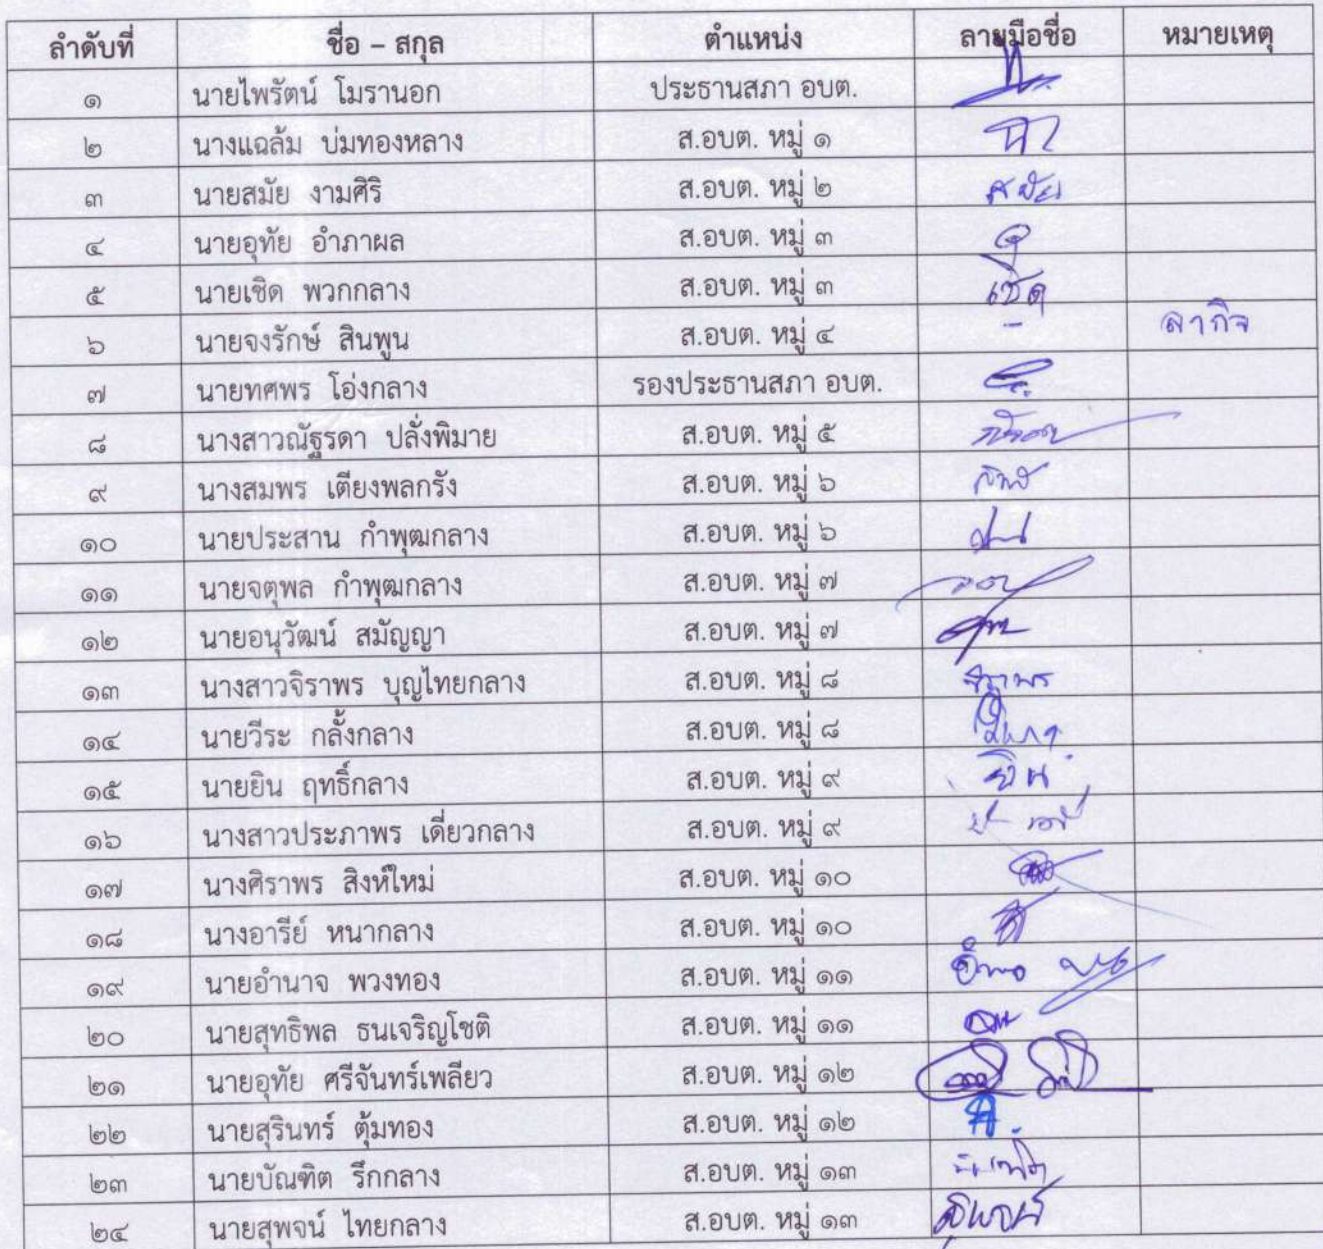 ลำดับที่ ชื่อ – สกุล ตำแหน่ง ลายมือชื่อ หมายเหตุ
๑ นายไพรัตน์ โมรานอก ประธานสภา อบต.
๒ นางแฉล้ม บ่มทองหลาง ส.อบต. หมู่ ๑
๓ นายสมัย งามศิริ ส.อบต. หมู่ ๒ สมัย
๔ นายอุทัย อำภาผล ส.อบต. หมู่ ๓
๕ นายเชิด พวกกลาง ส.อบต. หมู่ ๓ เชิด
๖ นายจงรักษ์ สินพูน ส.อบต. หมู่ ๔ - ลากิจ
๗ นายทศพร โอ่งกลาง รองประธานสภา อบต.
๘ นางสาวณัฐรดา ปลั่งพิมาย ส.อบต. หมู่ ๕
๙ นางสมพร เตียงพลกรัง ส.อบต. หมู่ ๖
๑๐ นายประสาน กำพุฒกลาง ส.อบต. หมู่ ๖
๑๑ นายจตุพล กำพุฒกลาง ส.อบต. หมู่ ๗
๑๒ นายอนุวัฒน์ สมัญญา ส.อบต. หมู่ ๗
๑๓ นางสาวจิราพร บุญไทยกลาง ส.อบต. หมู่ ๘ จิราพร
๑๔ นายวีระ กลั้งกลาง ส.อบต. หมู่ ๘
๑๕ นายยิน ฤทธิ์กลาง ส.อบต. หมู่ ๙ ยิน
๑๖ นางสาวประภาพร เดี่ยวกลาง ส.อบต. หมู่ ๙
๑๗ นางศิราพร สิงห์ใหม่ ส.อบต. หมู่ ๑๐
๑๘ นางอารีย์ หนากลาง ส.อบต. หมู่ ๑๐
๑๙ นายอำนาจ พวงทอง ส.อบต. หมู่ ๑๑
๒๐ นายสุทธิพล ธนเจริญโชติ ส.อบต. หมู่ ๑๑
๒๑ นายอุทัย ศรีจันทร์เพลียว ส.อบต. หมู่ ๑๒
๒๒ นายสุรินทร์ ตุ้มทอง ส.อบต. หมู่ ๑๒
๒๓ นายบัณฑิต รึกกลาง ส.อบต. หมู่ ๑๓
๒๔ นายสุพจน์ ไทยกลาง ส.อบต. หมู่ ๑๓ สุพจน์